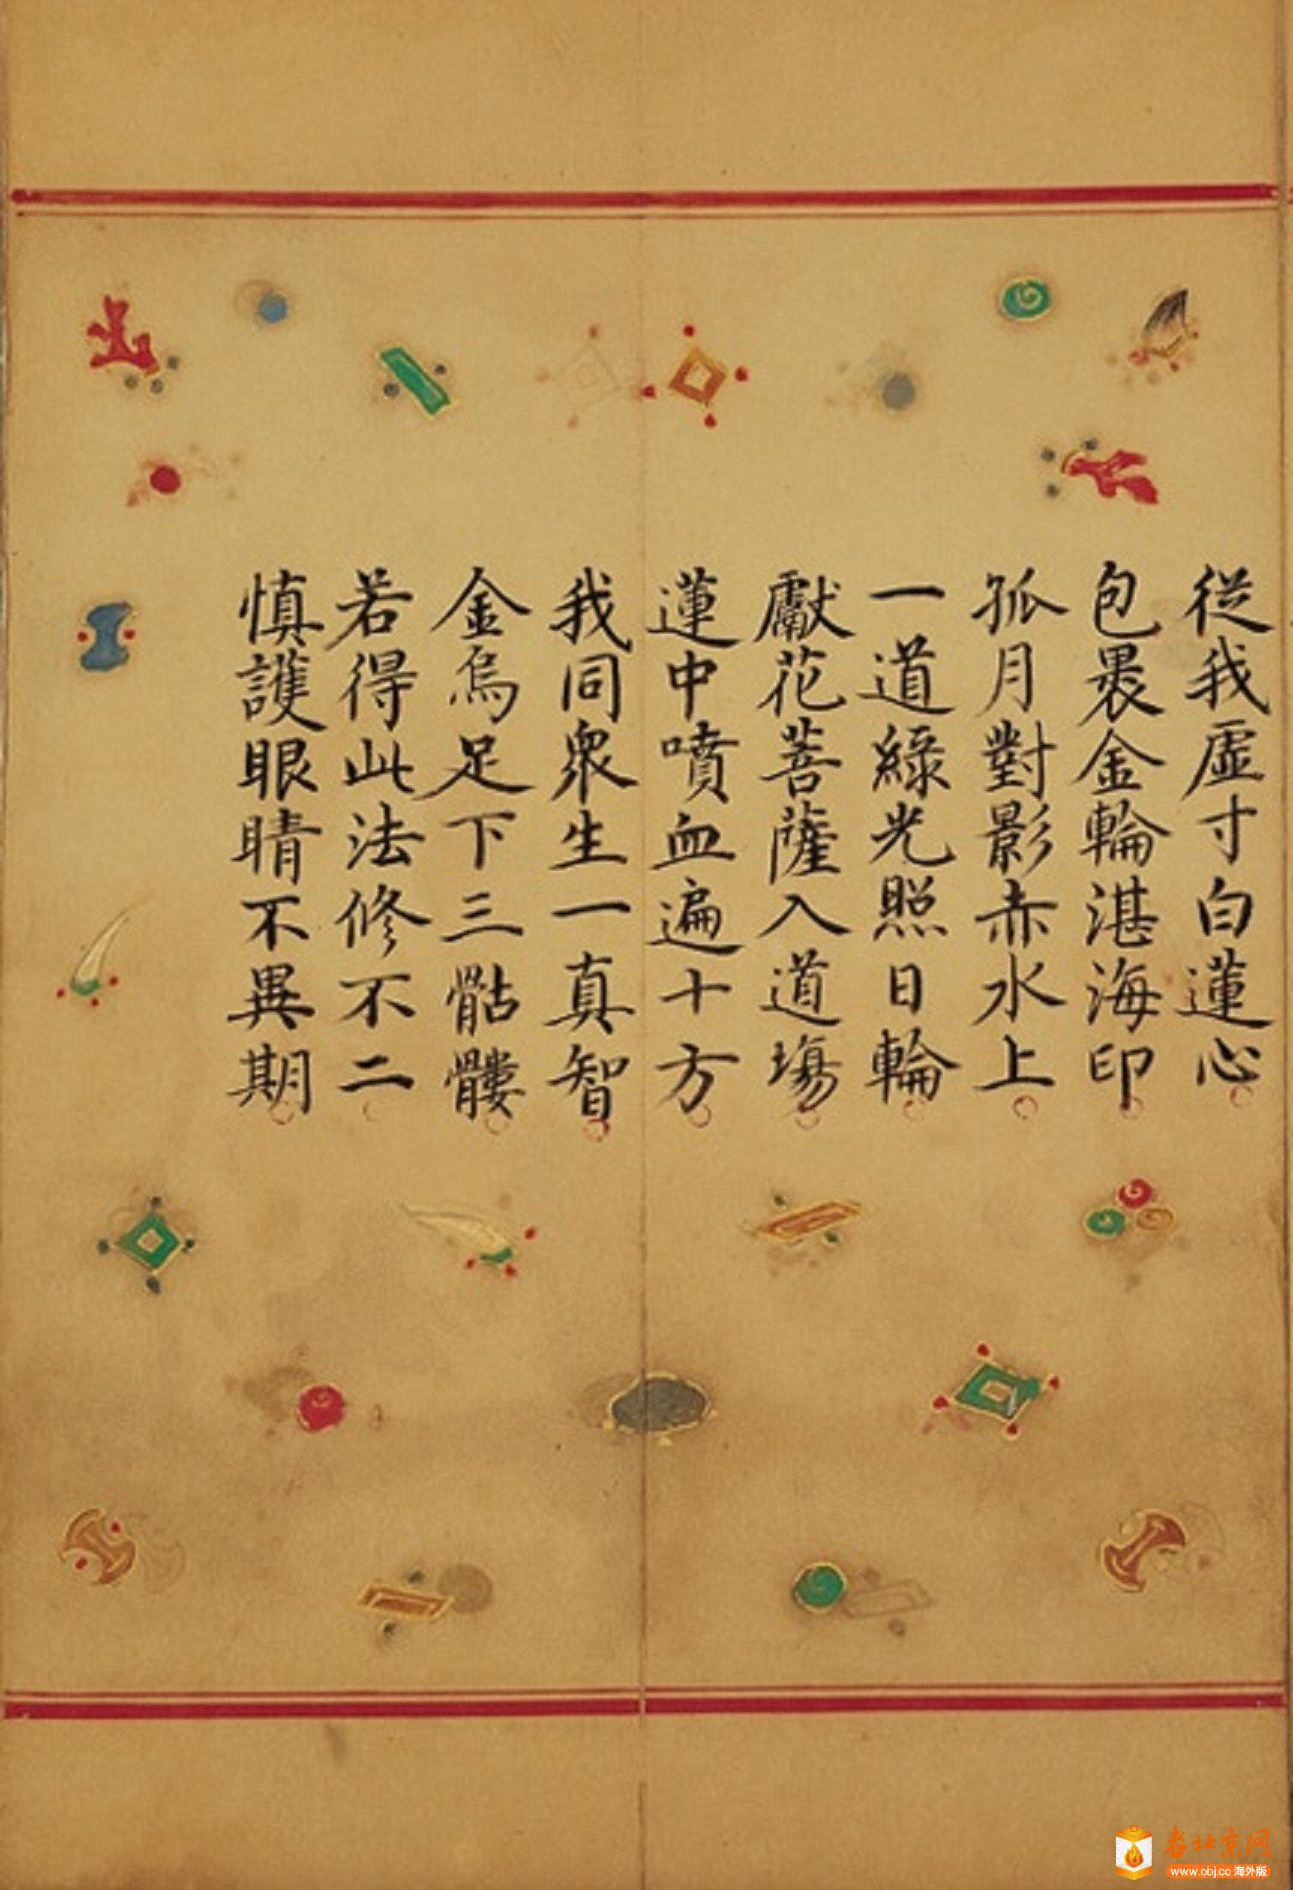 從我虛寸白蓮心
包褁金輪湛海印
孤月對影赤水上
一道綠光照日輪
獻花菩薩入道場
蓮中噴血遍十方
我同衆生一真智
金烏足下三骷髏
若得此法修不二
慎護眼睛不異期
老北京网
www.obj.cc 海外版